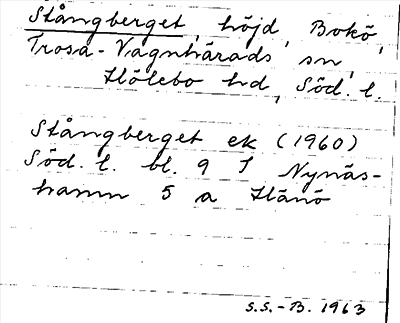 Stångberget, höjd, Bokö,
Trosa-Vagnhärads sn,
Hölebo hd, Söd. l.
Stångberget ek (1960)
Söd. l. bl. 9 I Nynäs-
hamn 5 a Hånö
S.S.-B. 1963